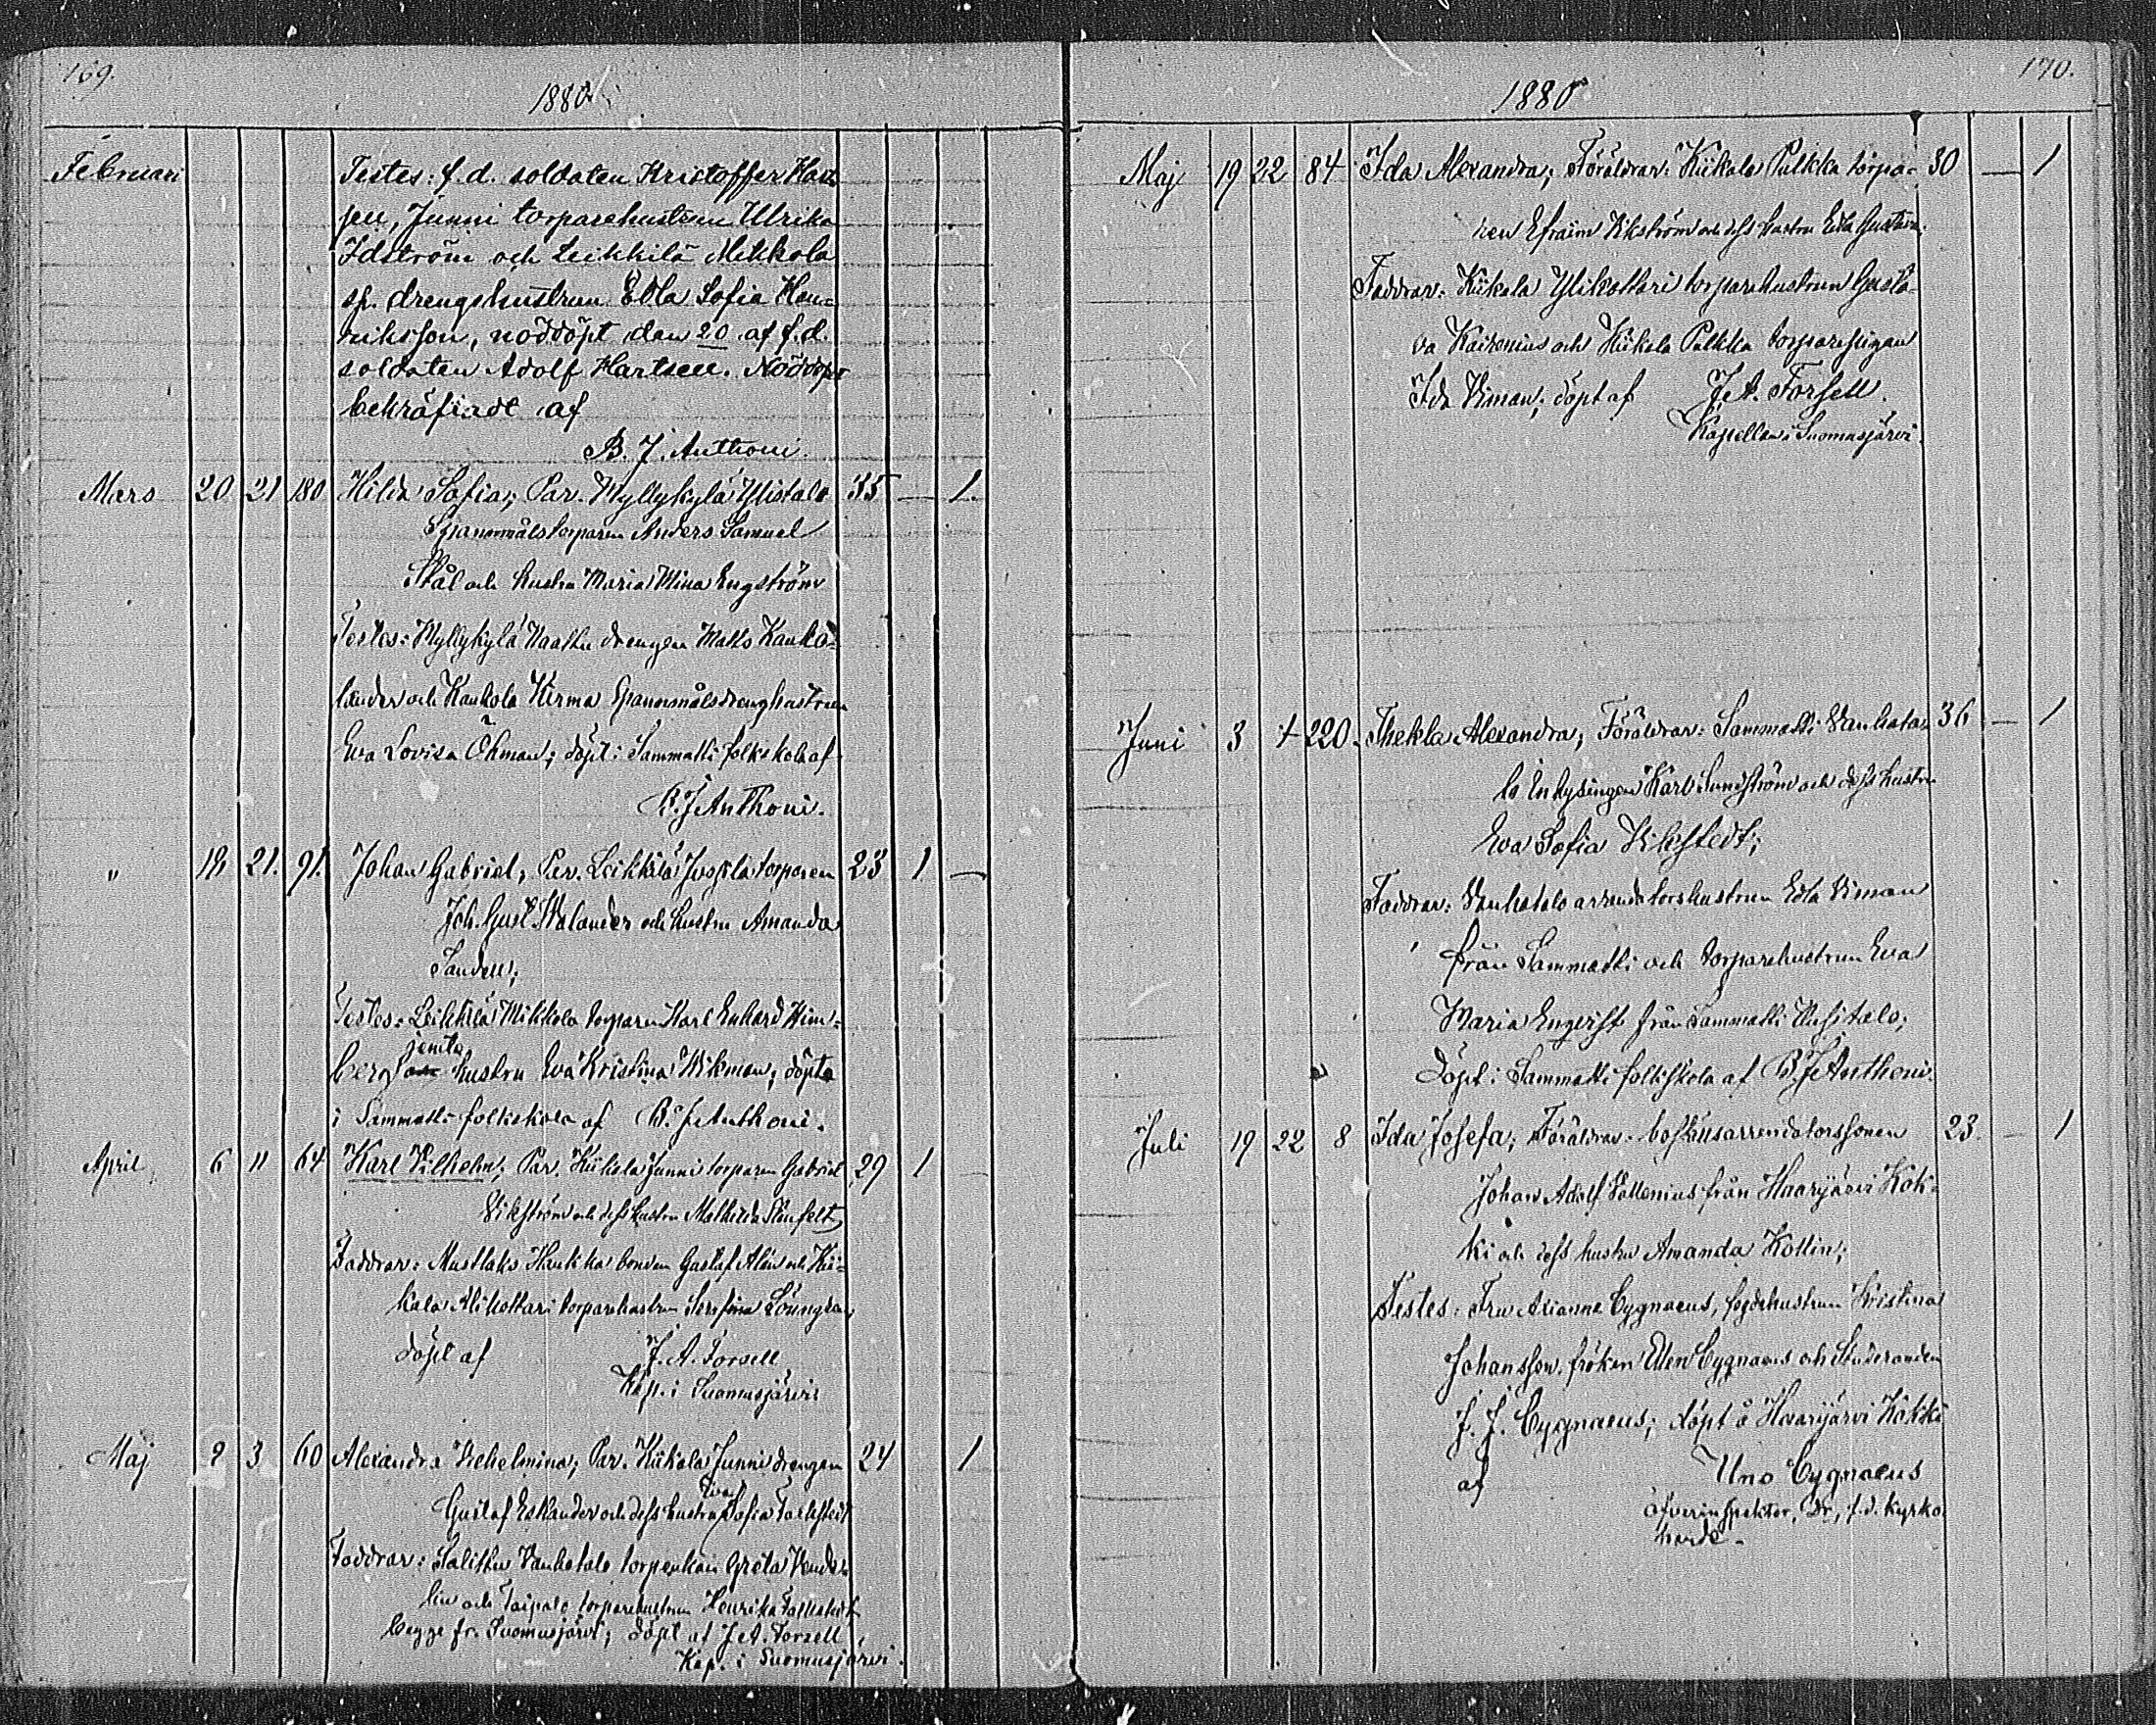 169.
1880
Februari Testes: f. d. soldaten Kristoffer Hart-
sen, Junni torparehustrun Ulrika
Idström och Leikkilä Mikkola
sp. drengshustrun Edla Sofia Hen-
riksson, nöddöpt den 20 af f. d.
soldaten Adolf Hartsen. Nöddopet
bekräftadt af
B. J. Anthoni.
Mars 20 21 180 Hilda Sofia; Par. Myllykylä Ylistalo 35 — 1.
Spanmålstorparen Anders Samuel
Stål och hustru Maria Mina Engström
Testes: Myllykylä drengen Matts Kanko-
lander och Kankola Hirma Spanmålsdrenghustrun
Eva Lovisa Öhman; döpt i Sammatti folkskola af
B. J. Anthoni.
" 18 21. 91. Johan Gabriel; Par. Leikkilä Juspila torparen 23 1 —
Joh. Gust. Valander och hustru Amanda
Sandell;
Testes: Leikkilä Mikkola torparen Karl Enhard Wim-
berg jemte hustru Eva Kristina Wikman; döpta
i Sammatti folkskola af B. J. Anthoni.
April 6 11 64 Karl Vilhelm; Par. Kiikala Junni torparen Gabriel 29 1
Vikström och dess hustru Mathilda Stenfelt
Faddrar: Mustlaks Haukka bonden Gustaf Alén och Kii-
kala Ylikottari torparehustrun Serafina Löungren,
döpt af J. A. Forsell
Kap. i Suomusjärvi
Maj 2 3 60 Alexandra Vilhelmina; Par. Kiikala Junni drengen 24 1
Eva
Gustaf Eklander och dess hustru Sofia Falkstedt
Faddrar: Salittu Vanhatalo torpenkan Greta Vende-
lin och Taipale torparehustrun Henrika Falkstedt
begge fr. Suomusjärvi; döpt af J. A. Forsell,
Kap. i Suomusjärvi.
170.
1880
Maj 19 22 84 Ida Alexandra; Föräldrar: Kiikala Pulkka torpa- 30 — 1
ren Efraim Vikström och dess hustru Edla Gustava;
Faddrar: Kiikala Ylikottari torparehustrun Gusta-
va Kaitonius och Kiikala Pulkka torparepigan
Ida Viman; döpt af J. A. Forsell.
Kapellan i Suomusjärvi.
Juni 3 4 220 Thekla Alexandra; Föräldrar: Sammatti Vanhata- 36 — 1
lo Inhysingen Karl Sundström och dess hustru
Eva Sofia Vikstedt;
Faddrar: Vanhatalo arrendatorshustrun Edla Viman
från Sammatti och torparehustrun Eva
Maria Engvist från Sammatti Uusitalo;
Döpt i Sammatti folkskola af B. J. Anthoni.
Juli 19 22 8 Ida Josefa; Föräldrar: boställsarrendatorssonen 23. — 1
Johan Adolf Vallenius från Haarijärvi Kok-
ki och dess hustru Amanda Kollin;
Testes: Fru Axianne Cygnaeus, fogdehustrun Kristina
Johansson, fröken Ellen Cygnaeus och Studeranden
J. J. Cygnaeus; döpt å Haarijärvi Kokki
af Uno Cygnaeus
öfverinspektor, Dr, f. d. kyrko-
herde.